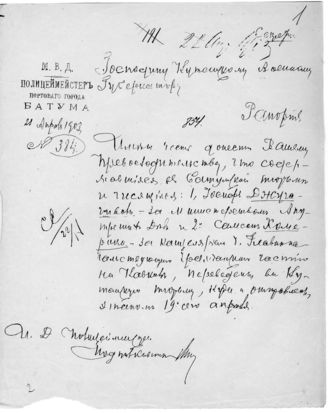 1
М. В. Д.
ПОЛИЦЕЙМЕЙСТЕРЪ
ПОРТОВАГО ГОРОДА
БАТУМА
21 Апрѣля 1903
№ 384
Господину Кутаискому Военному
Губернатору
834.
Рапортъ
Имѣю честь донести Вашему
Превосходительству, что содер-
жавшіеся въ Батумской тюрьмѣ
и числящіеся: 1, Іосифъ Джуга-
швили - за Министерствомъ Внут-
реннихъ Дѣлъ и 2
- за канцеляріей Главнона-
чальствующаго Гражданскою частію
на Кавказѣ, переведены въ Ку-
таисскую тюрьму, куда и отправлены
этапомъ 19го сего апрѣля.
И. Д. Полицеймейстера
2